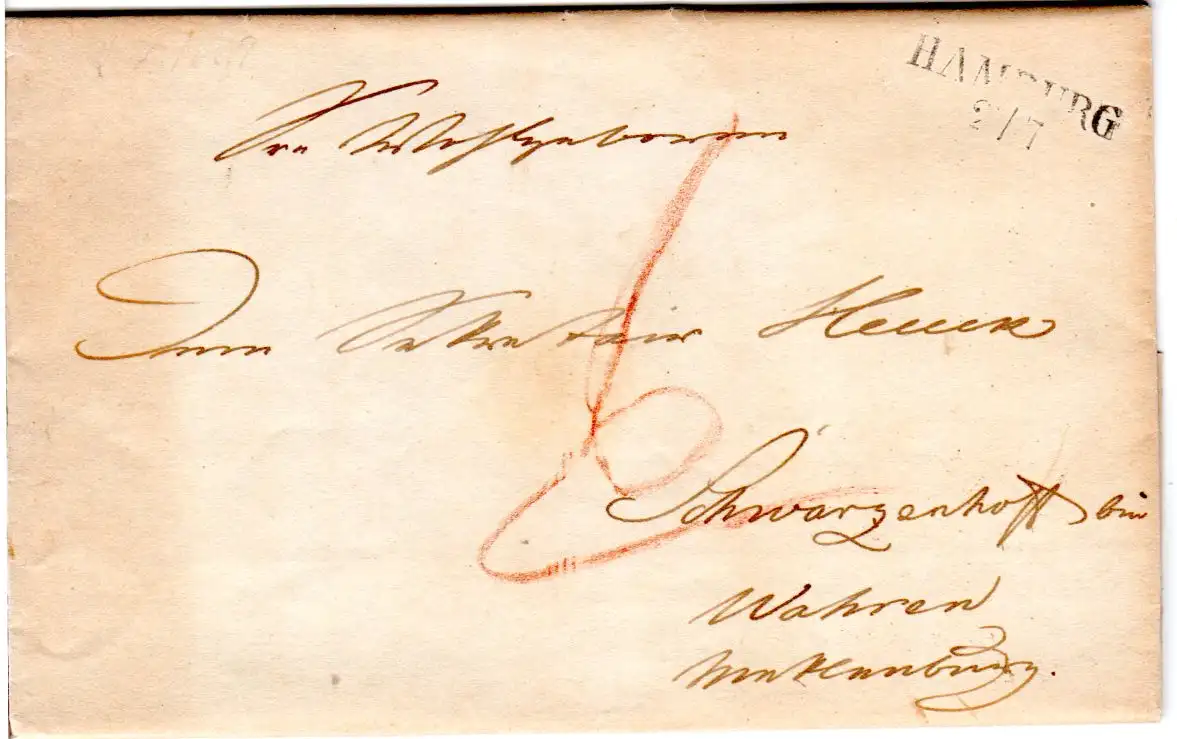 HAMBURG
2/7
Sr. Wohlgeboren
Herrn Sekretair Heuck
Schwarzenhoff bei
Wahren
Meklenburg.